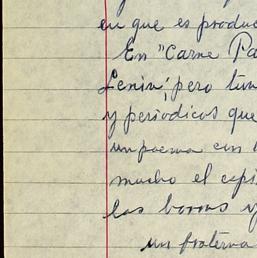 en que es produc
En "Carne Pa
Lenin; pero tun
y periodicos que
un poema con l
mucho el capi
las borros y
un fraterna